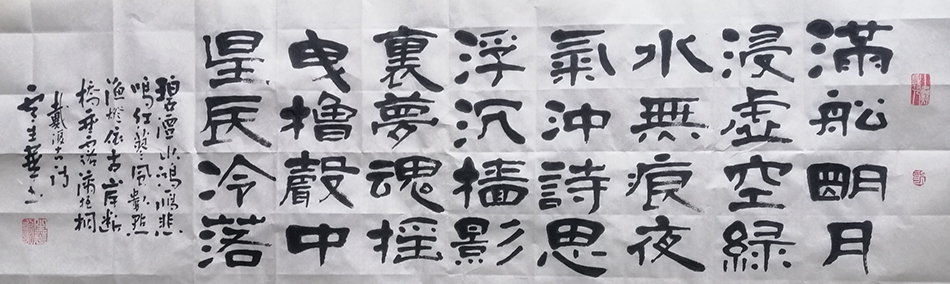 滿船明月
浸虛空綠
水無痕夜
氣沖詩思
浮沉檣影
裏夢魂搖
曳櫓聲中
星辰冷落
碧潭水鴻悲
鳴紅蓼風數點
漁燈依古岸斷
橋垂露滴梧桐
戴復古詩